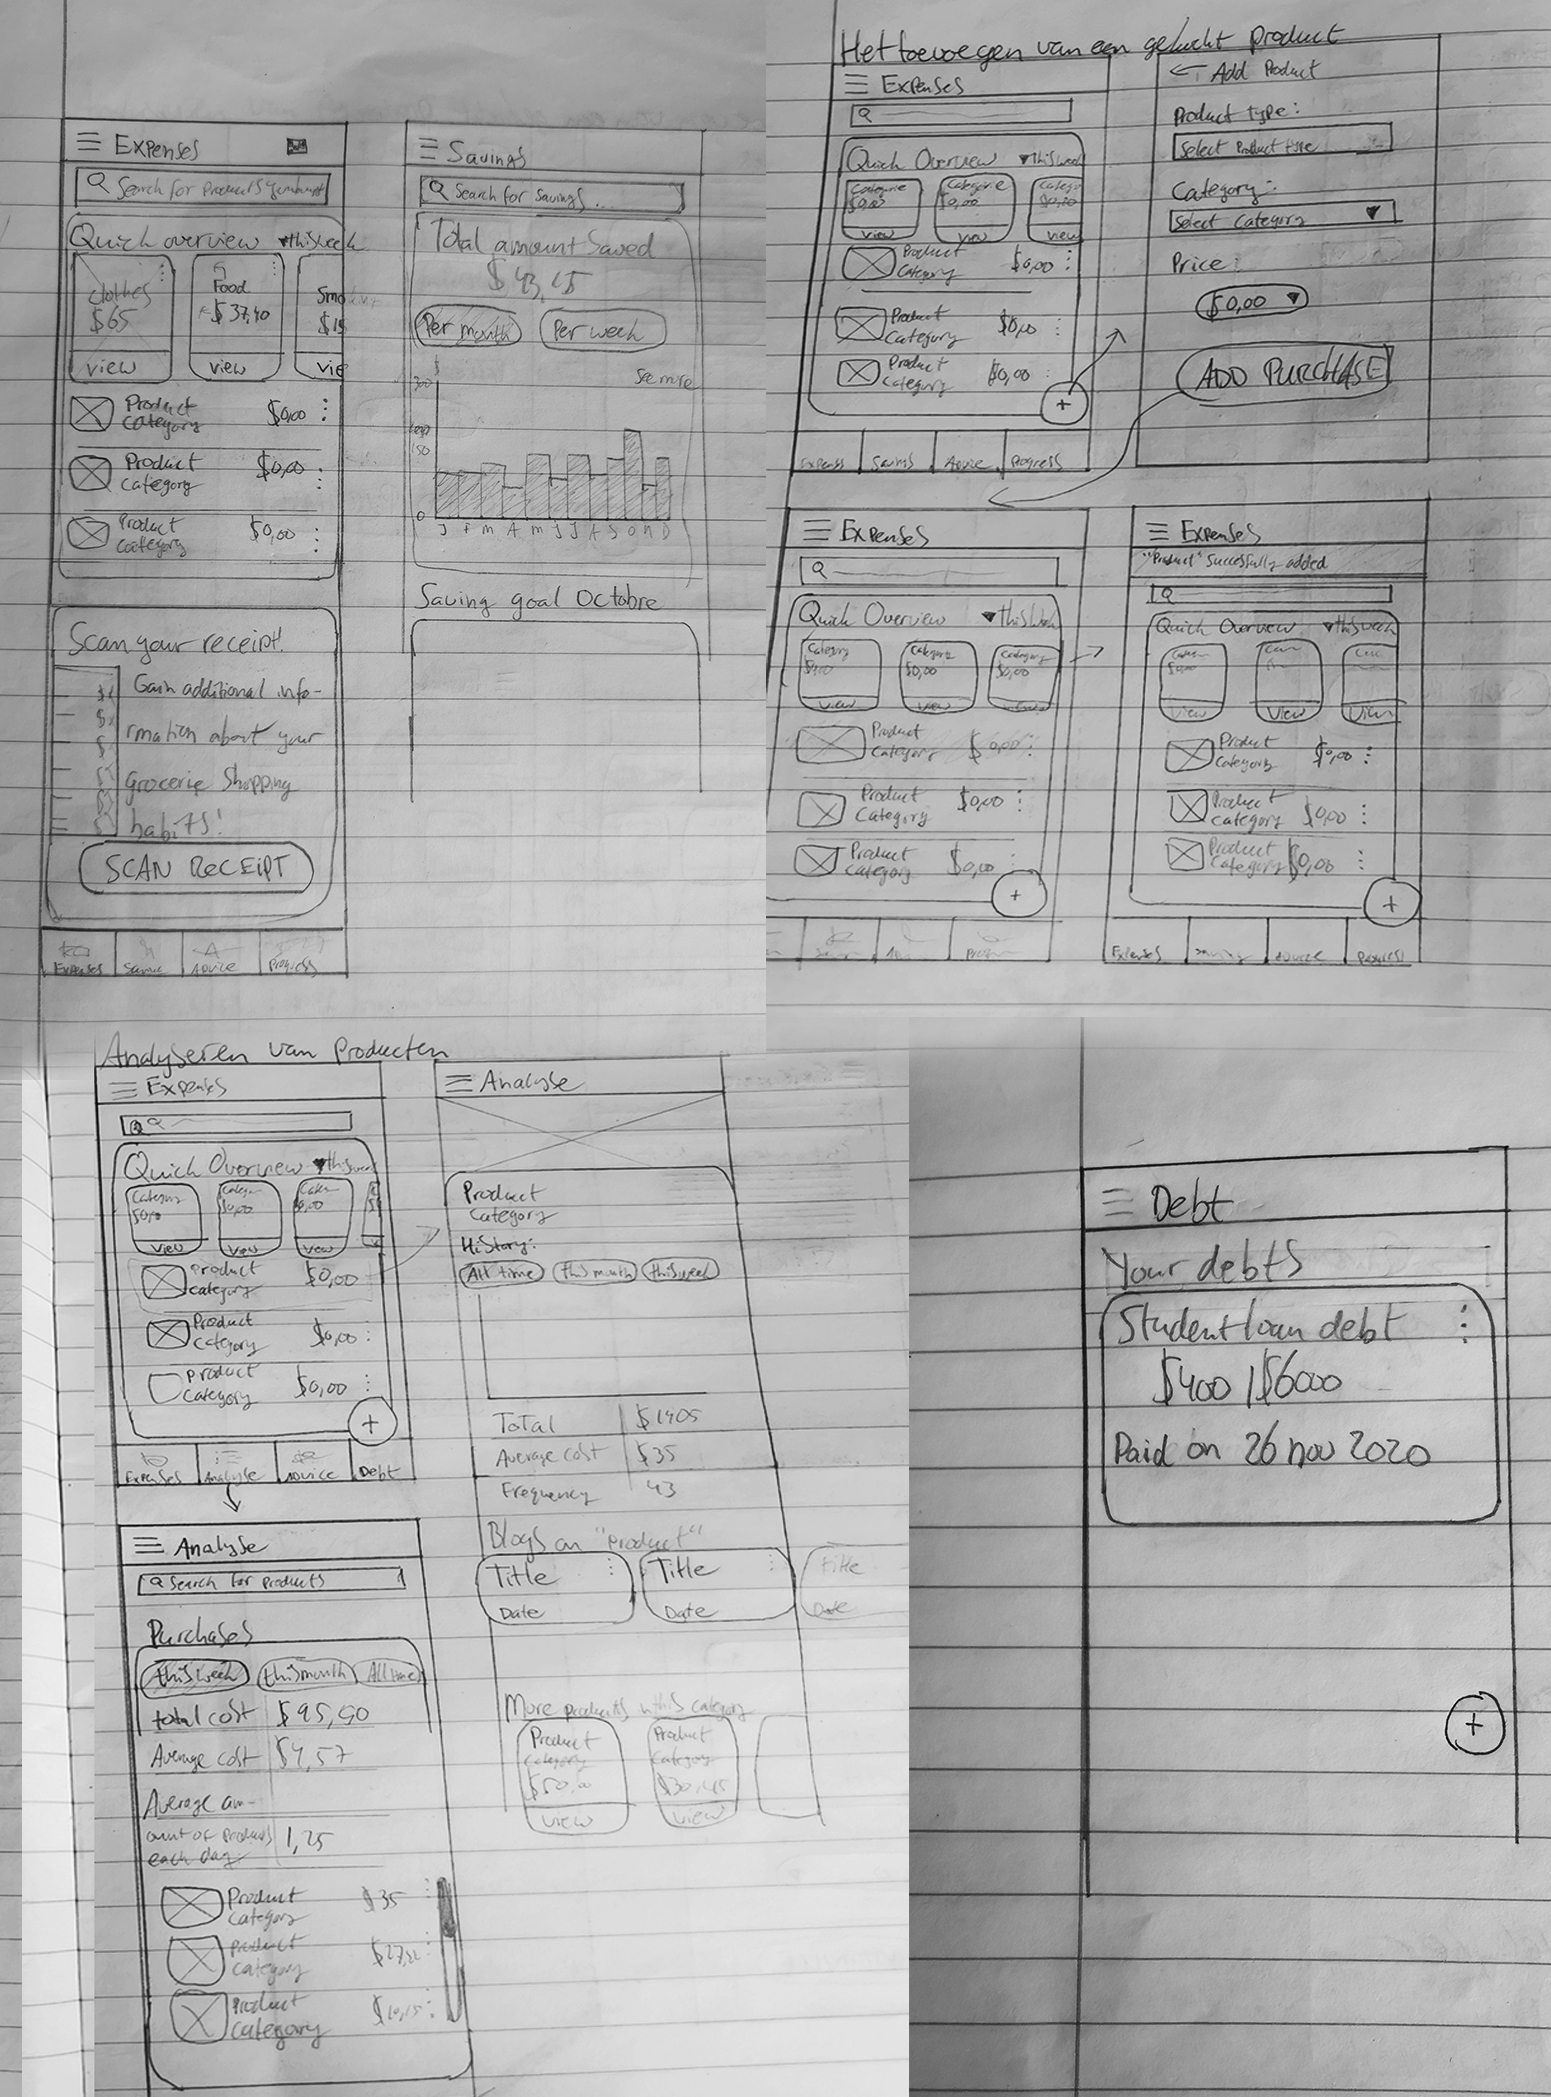 Expenses
Search for Products
Quick overview ▾this week
clothes
$65
view
Food
$37,40
view
Smo
$15
vie
Product
Category
$0,00
Product
Category
$0,00
Product
Category
$0,00
Scan your receipt!
Gain additional info-
rmation about your
grocerie shopping
habits!
SCAN RECEIPT
Expenses
Advice
Progress
Savings
Search for savings...
Total amount Saved
$43,45
Per month
Per week
See more
$
300
150
0
J F M A M J J A S O N D
Saving goal Octobre
Het toevoegen van een gekocht product
Expenses
Quick Overview ▾this week
Categorie
$0,00
view
Categorie
$0,00
view
Catego
$0,00
view
Product
Category
$0,00
Product
Category
$0,00
Product
Category
$0,00
+
Expenses
Savings
Advice
Progress
← Add Product
Product type:
Select Product type
Category:
Select Category ▾
Price:
$0,00 ▾
ADD PURCHASE
Expenses
Quick Overview ▾this week
Category
$0,00
view
Category
$0,00
view
Category
$0,00
view
Product
Category
$0,00
Product
Category
$0,00
Product
Category
$0,00
+
Expenses
"Product" successfully added
Quick Overview ▾this week
View
View
View
Product
Category
$0,00
Product
Category
$0,00
Product
Category
$0,00
+
Expenses
Progress
Analyseren van producten
Expenses
Quick Overview ▾this week
Category
$0,00
view
$0,00
view
$0,00
view
Product
Category
$0,00
Product
Category
$0,00
Product
Category
$0,00
+
Expenses
Analyse
Advice
Debt
Analyse
Product
Category
History:
All time
this month
this week
Total
$1405
Average cost
$35
Frequency
43
Blogs on "product"
Title
Date
Title
Date
Title
Date
More products in this category
Product
Category
$50,00
View
Product
Category
$30,45
View
Analyse
Search for products
Purchases
this week
this month
All time
total cost
$95,90
Average cost
$4,57
Average am-
ount of products
each day
1,25
Product
Category
$35
Product
Category
Product
Category
Debt
Your debts
Student loan debt
$400 / $6000
Paid on 26 nov 2020
+